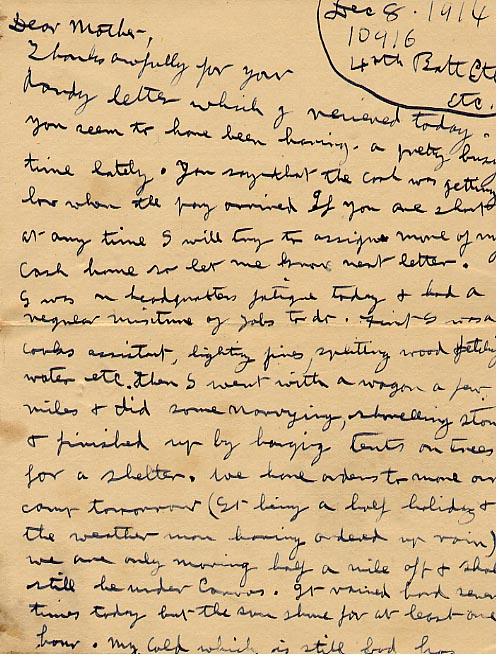 Dec 8. 1914
10916
4th Batt Etc
Etc.
Dear Mother,
Thanks awfully for your
dandy letter which I recieved today.
you seem to have been having a pretty busy
time lately. You say that the cash was getting
low when the pay arrived If you are short
at any time I will try to assign more of my
cash home so let me know next letter.
I was on headquarters fatigue today & had a
regular mixture of jobs to do. First I was a
cooks assistant, lighting fires, splitting wood fetching
water etc. then I went with a wagon a few
miles & did some navvying, shovelling stone
& finished up by hanging tents on trees
for a shelter. We have orders to move our
camp tomorrow (It being a half holiday &
the weather man having ordered up rain)
we are only moving half a mile off & shall
still be under Canvas. It rained hard several
times today but the sun shone for at least one
hour. My cold which is still bad has